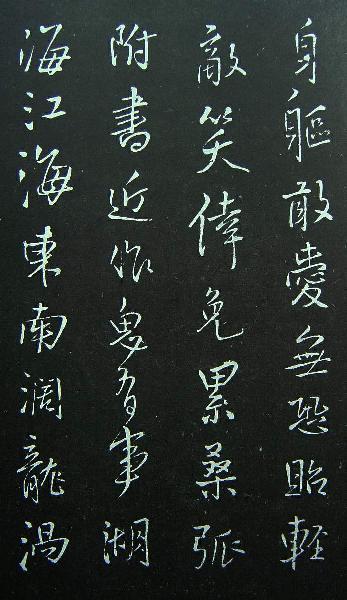 身軀敢愛無恐貽輕
敵笑倖免累桑弧
附書近作有事湖
海江海東南濶龍渦